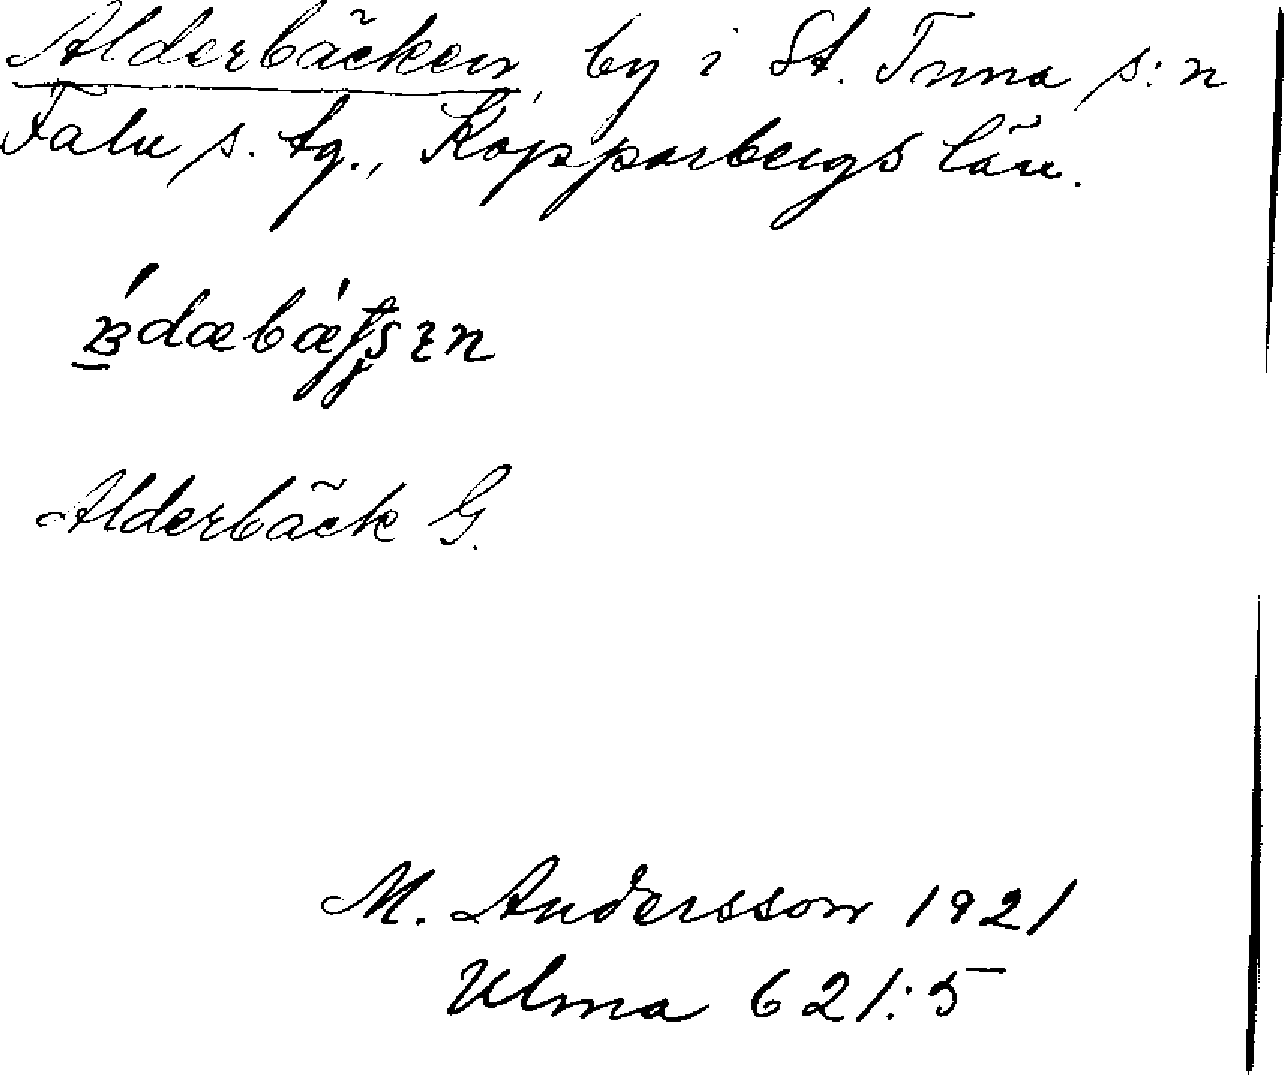 Alderbäcken, by i St. Tuna s:n
Falu s. tg., Kopparbergs län.
Alderbäck G.
M. Andersson 1921
Ulma 621:5